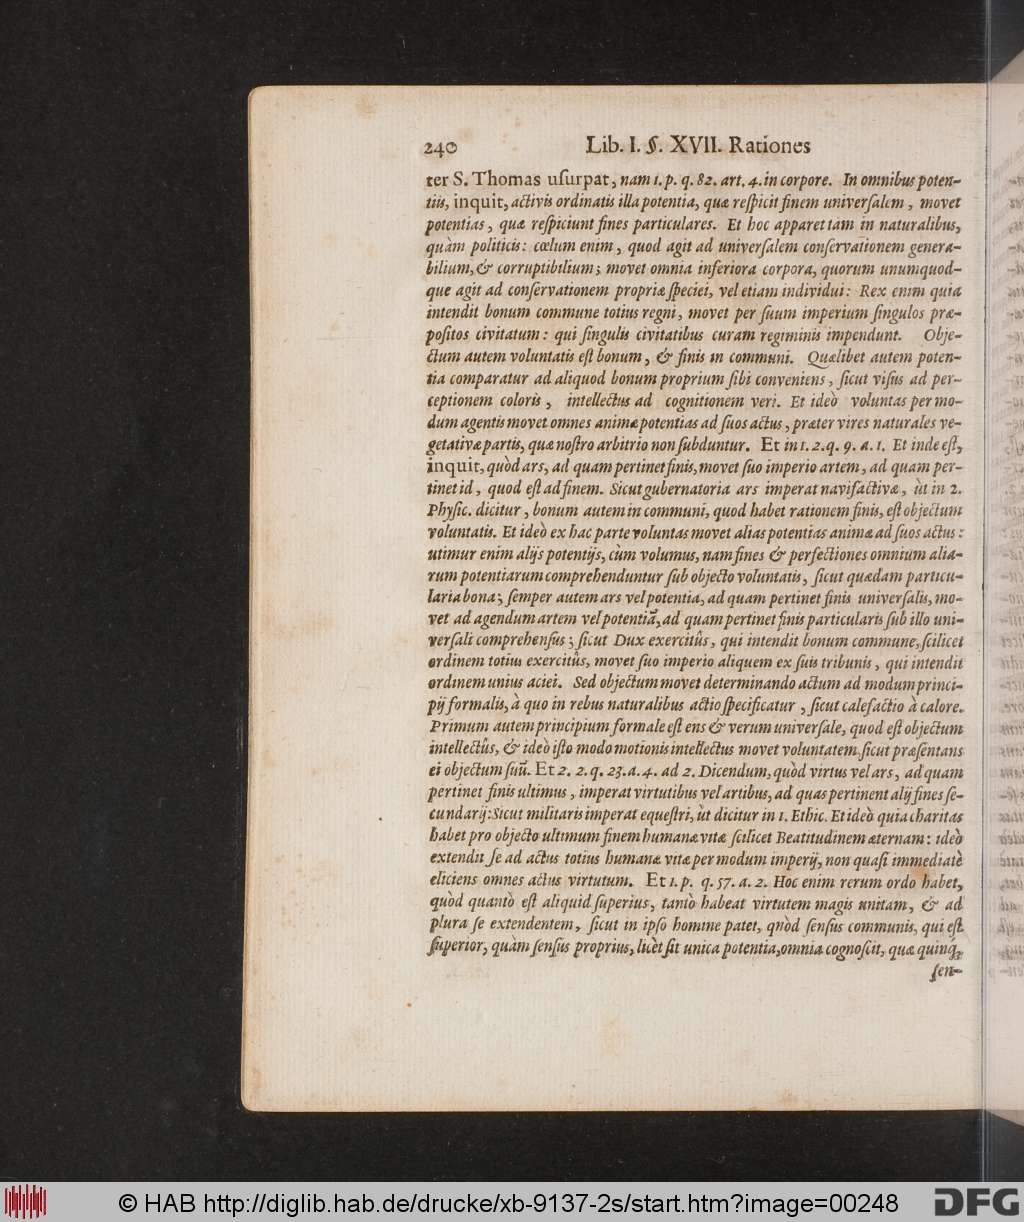 240 Lib. I. §. XVII. Rationes
ter S. Thomas uſurpat, nam 1. p. q. 82. art. 4. in corpore. In omnibus poten-
tiis, inquit, activis ordinatis illa potentia, quæ reſpicit finem univerſalem, movet
potentias, quæ reſpiciunt fines particulares. Et hoc apparet tàm in naturalibus,
quàm politicis: cœlum enim, quod agit ad univerſalem conſervationem genera-
bilium, & corruptibilium; movet omnia inferiora corpora, quorum unumquod-
que agit ad conſervationem propriæ ſpeciei, vel etiam individui: Rex enim quia
intendit bonum commune totius regni, movet per ſuum imperium ſingulos præ-
poſitos civitatum: qui ſingulis civitatibus curam regiminis impendunt. Obje-
ctum autem voluntatis eſt bonum, & finis in communi. Quælibet autem poten-
tia comparatur ad aliquod bonum proprium ſibi conveniens, ſicut viſus ad per-
ceptionem coloris, intellectus ad cognitionem veri. Et ideò voluntas per mo-
dum agentis movet omnes animæ potentias ad ſuos actus, præter vires naturales ve-
getativæ partis, quæ noſtro arbitrio non ſubduntur. Et in 1. 2. q. 9. a. 1. Et inde eſt,
inquit, quòd ars, ad quam pertinet finis, movet ſuo imperio artem, ad quam per-
tinet id, quod eſt ad finem. Sicut gubernatoria ars imperat navifactivæ, ùt in 2.
Phyſic. dicitur, bonum autem in communi, quod habet rationem finis, eſt objectum
voluntatis. Et ideò ex hac parte voluntas movet alias potentias animæ ad ſuos actus:
utimur enim alijs potentijs, cùm volumus, nam fines & perfectiones omnium alia-
rum potentiarum comprehenduntur ſub objecto voluntatis, ſicut quædam particu-
laria bona; ſemper autem ars vel potentia, ad quam pertinet finis univerſalis, mo-
vet ad agendum artem vel potentiã, ad quam pertinet finis particularis ſub illo uni-
verſali comprehenſus; ſicut Dux exercitûs, qui intendit bonum commune, ſcilicet
ordinem totius exercitûs, movet ſuo imperio aliquem ex ſuis tribunis, qui intendit
ordinem unius aciei. Sed objectum movet determinando actum ad modum princi-
pij formalis, à quo in rebus naturalibus actio ſpecificatur, ſicut calefactio à calore.
Primum autem principium formale eſt ens & verum univerſale, quod eſt objectum
intellectûs, & ideò iſto modo motionis intellectus movet voluntatem ſicut præſentans
ei objectum ſuũ. Et 2. 2. q. 23. a. 4. ad 2. Dicendum, quòd virtus vel ars, ad quam
pertinet finis ultimus, imperat virtutibus vel artibus, ad quas pertinent alij fines ſe-
cundarij: Sicut militaris imperat equeſtri, ùt dicitur in 1. Ethic. Et ideò quia charitas
habet pro objecto ultimum finem humanæ vitæ ſcilicet Beatitudinem æternam: ideò
extendit ſe ad actus totius humanæ vitæ per modum imperij, non quaſi immediatè
eliciens omnes actus virtutum. Et 1. p. q. 57. a. 2. Hoc enim rerum ordo habet,
quòd quantò eſt aliquid ſuperius, tantò habeat virtutem magis unitam, & ad
plura ſe extendentem, ſicut in ipſo homine patet, quòd ſenſus communis, qui eſt
ſuperior, quàm ſenſus proprius, licèt ſit unica potentia, omnia cognoſcit, quæ quinq́;
ſen-
© HAB http://diglib.hab.de/drucke/xb-9137-2s/start.htm?image=00248
DFG